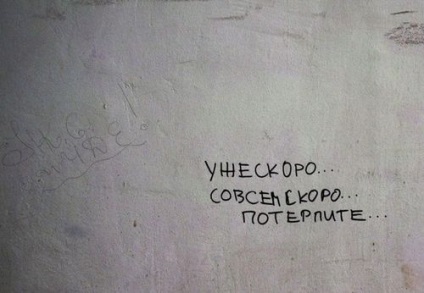 УЖЕСКОРО...
СОВСЕМ СКОРО...
ПОТЕРПИТЕ...